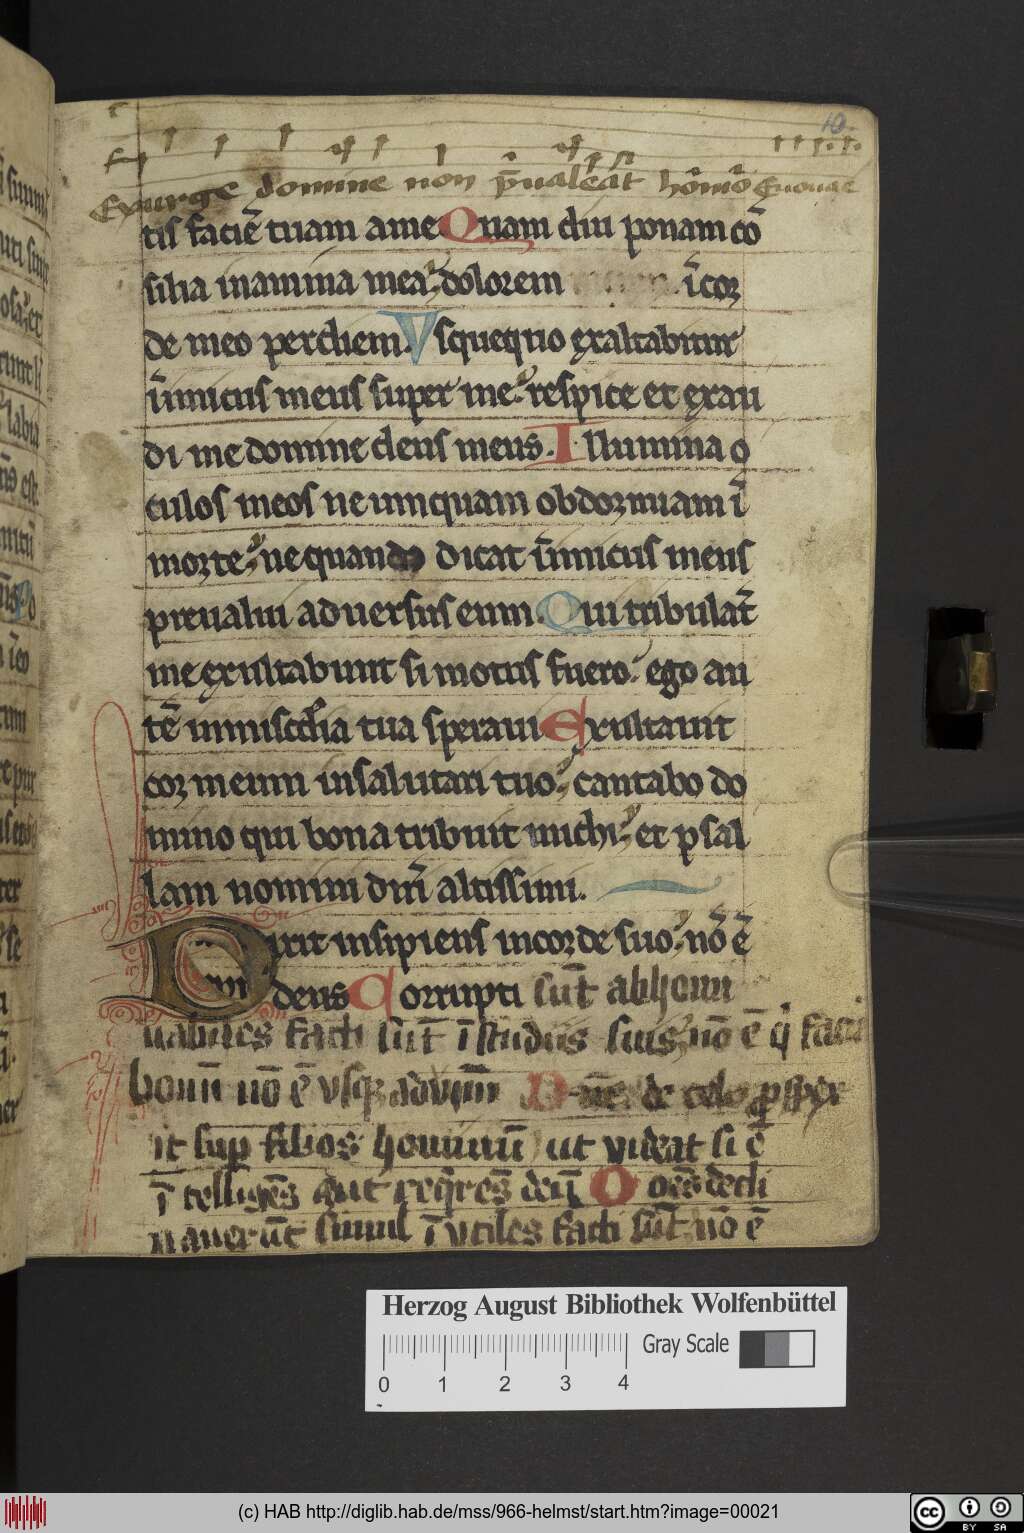 10
Exurge domine non p̄ualeat homo Euouae
tis faciē tuam a me Quam diu ponam cō
silia in anima mea dolorem ī cor
de meo per diem. Vsquequo exaltabitur
īimicus meus super me respice et exau
di me domine deus meus. Illumina o
culos meos ne umquam obdormiam ī
morte ne quando dicat īimicus meus
preualui aduersus eum. Qui tribulāt
me exultabunt si motus fuero. ego au
tē in mis̄cdia tua speraui Exultauit
cor meum in salutari tuo cantabo do
mino qui bona tribuit michi et psal
lam nomini dnī altissimi.
Dixit insipiens in corde suo nō ē
deus Corrupti sūt abhomi
nabiles facti sūt ī studiis suis nō ē q̇ faciat
bonū nō ē vsq₃ ad vnū Dn̄e de celo ꝓspex
it sup̄ filios hominū ut videat si ē
ītelligēs aut req̇rēs deū Oōēs decli
nauerūt simul īvtiles facti sūt nō ē
Herzog August Bibliothek Wolfenbüttel
Gray Scale
0 1 2 3 4
(c) HAB http://diglib.hab.de/mss/966-helmst/start.htm?image=00021
cc BY SA